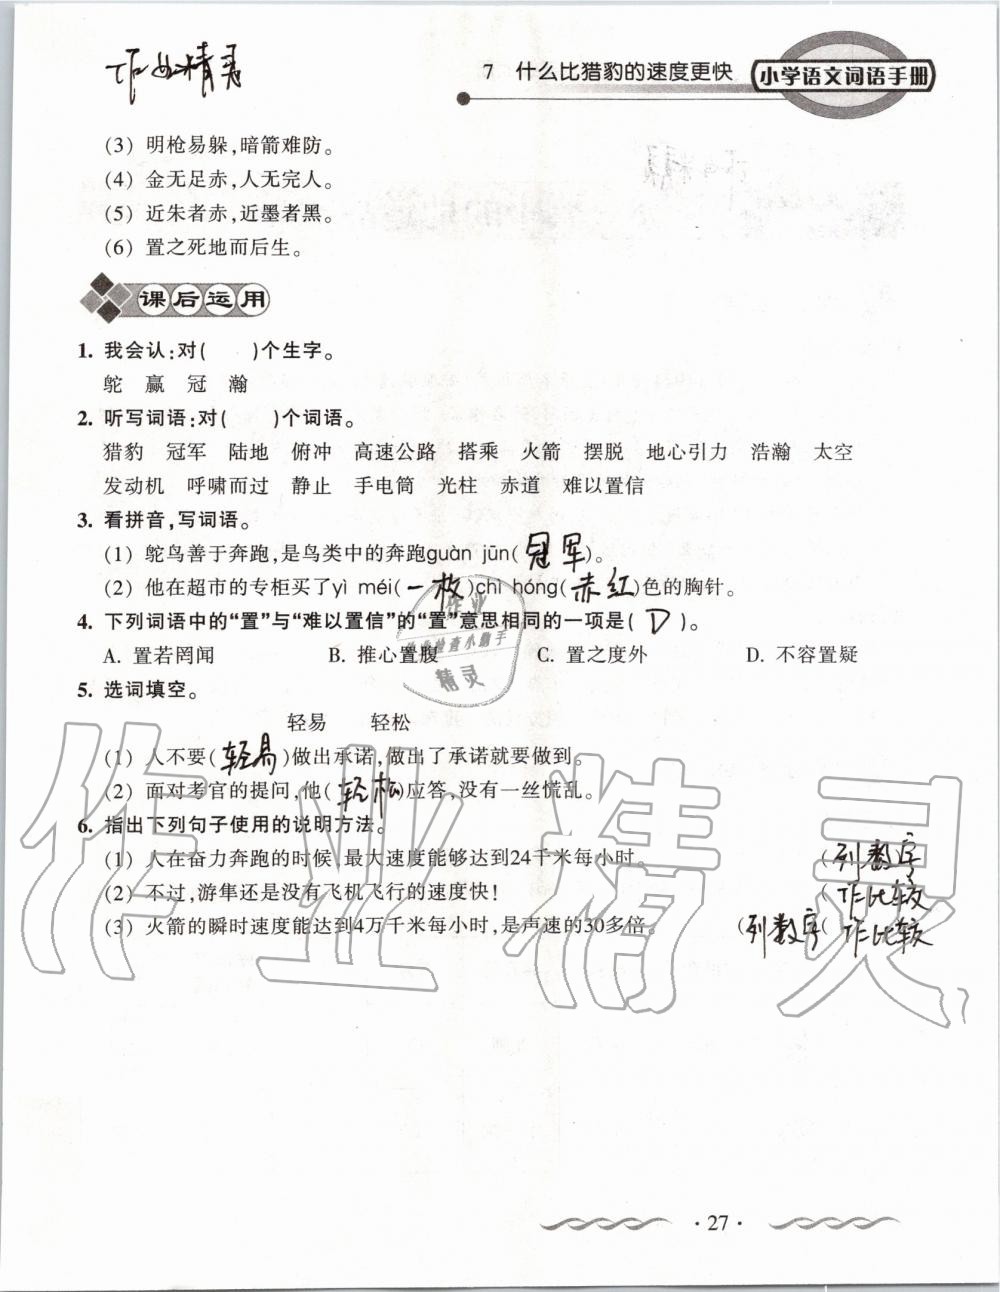 作业精灵
7 什么比猎豹的速度更快
小学语文词语手册
(3) 明枪易躲,暗箭难防。
(4) 金无足赤,人无完人。
(5) 近朱者赤,近墨者黑。
(6) 置之死地而后生。
课后运用
1. 我会认:对(    )个生字。
鸵 赢 冠 瀚
2. 听写词语:对(    )个词语。
猎豹 冠军 陆地 俯冲 高速公路 搭乘 火箭 摆脱 地心引力 浩瀚 太空
发动机 呼啸而过 静止 手电筒 光柱 赤道 难以置信
3. 看拼音,写词语。
(1) 鸵鸟善于奔跑,是鸟类中的奔跑guàn jūn(冠军)。
(2) 他在超市的专柜买了yì méi(一枚)chì hóng(赤红)色的胸针。
4. 下列词语中的“置”与“难以置信”的“置”意思相同的一项是( D )。
A. 置若罔闻 B. 推心置腹 C. 置之度外 D. 不容置疑
作业
作业检查小助手
精灵
5. 选词填空。
轻易 轻松
(1) 人不要(轻易)做出承诺,做出了承诺就要做到。
(2) 面对考官的提问,他(轻松)应答,没有一丝慌乱。
6. 指出下列句子使用的说明方法。
(1) 人在奋力奔跑的时候,最大速度能够达到24千米每小时。 (列数字
(2) 不过,游隼还是没有飞机飞行的速度快! (作比较
(3) 火箭的瞬时速度能达到4万千米每小时,是声速的30多倍。 (列数字 (作比较
作业精灵
·27·